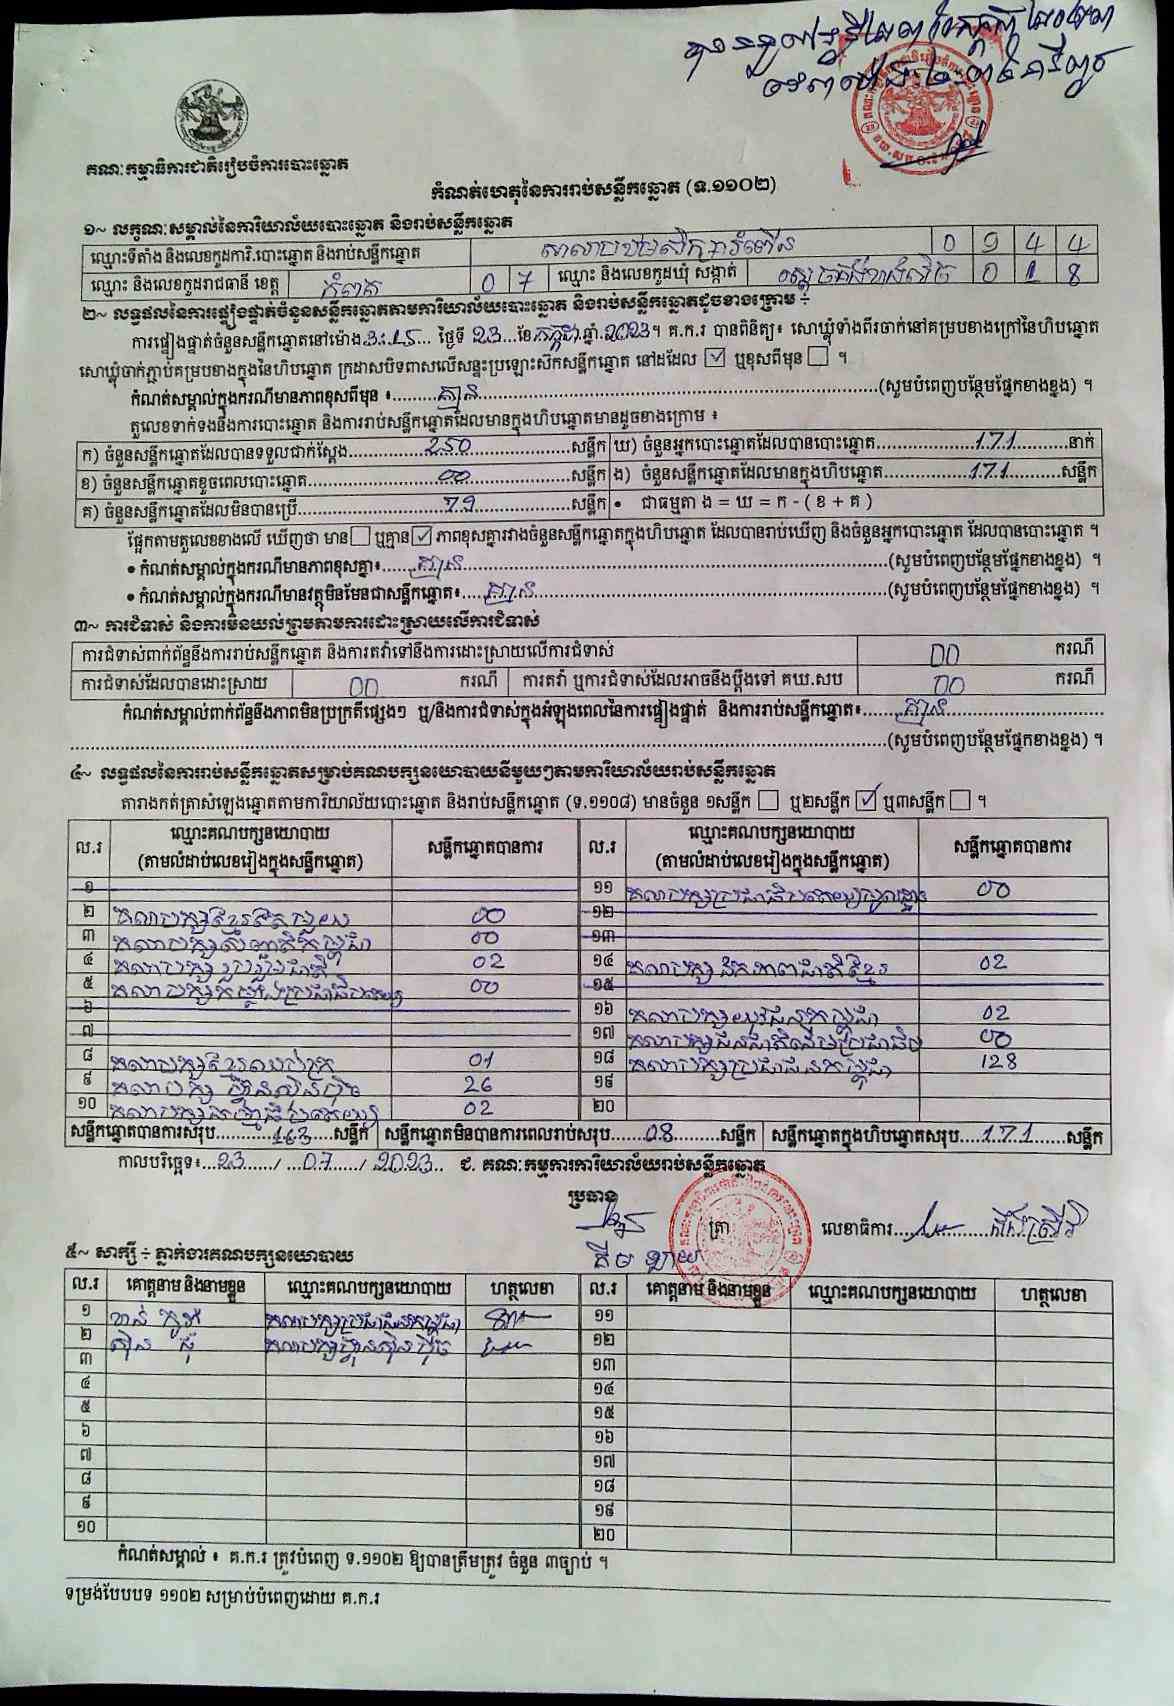 គណៈកម្មាធិការជាតិរៀបចំការបោះឆ្នោត
កំណត់ហេតុនៃការរាប់សន្លឹកឆ្នោត (ទ.១១០២)
១~ លក្ខណៈសម្គាល់នៃការិយាល័យបោះឆ្នោត និងរាប់សន្លឹកឆ្នោត
ឈ្មោះទីតាំង និងលេខកូដការិ.បោះឆ្នោត និងរាប់សន្លឹកឆ្នោត 0 9 4 4
ឈ្មោះ និងលេខកូដរាជធានី ខេត្ត កំពត 0 7 ឈ្មោះ និងលេខកូដឃុំ សង្កាត់ 0 1 8
២~ លទ្ធផលនៃការផ្ទៀងផ្ទាត់ចំនួនសន្លឹកឆ្នោតតាមការិយាល័យបោះឆ្នោត និងរាប់សន្លឹកឆ្នោតដូចខាងក្រោម ÷
ការផ្ទៀងផ្ទាត់ចំនួនសន្លឹកឆ្នោតនៅម៉ោង 3:15 ថ្ងៃទី 23 ខែ កក្កដា ឆ្នាំ 2023 ។ គ.ក.រ បានពិនិត្យ៖ សោឃ្លុំទាំងពីរចាក់នៅគម្របខាងក្រៅនៃហិបឆ្នោត
សោឃ្លុំចាក់ភ្ជាប់គម្របខាងក្នុងនៃហិបឆ្នោត ក្រដាសបិទពាសលើសន្ទះប្រឡោះស៊កសន្លឹកឆ្នោត នៅដដែល ☑ ឬខុសពីមុន ☐ ។
កំណត់សម្គាល់ក្នុងករណីមានភាពខុសពីមុន ៖ គ្មាន (សូមបំពេញបន្ថែមផ្នែកខាងខ្នង) ។
តួលេខទាក់ទងនឹងការបោះឆ្នោត និងការរាប់សន្លឹកឆ្នោតដែលមានក្នុងហិបឆ្នោតមានដូចខាងក្រោម ៖
ក) ចំនួនសន្លឹកឆ្នោតដែលបានទទួលជាក់ស្តែង 250 សន្លឹក ឃ) ចំនួនអ្នកបោះឆ្នោតដែលបានបោះឆ្នោត 171 នាក់
ខ) ចំនួនសន្លឹកឆ្នោតខូចពេលបោះឆ្នោត 00 សន្លឹក ង) ចំនួនសន្លឹកឆ្នោតដែលមានក្នុងហិបឆ្នោត 171 សន្លឹក
គ) ចំនួនសន្លឹកឆ្នោតដែលមិនបានប្រើ 79 សន្លឹក • ជាធម្មតា ង = ឃ = ក - ( ខ + គ )
ផ្អែកតាមតួលេខខាងលើ ឃើញថា មាន ☐ ឬគ្មាន ☑ ភាពខុសគ្នារវាងចំនួនសន្លឹកឆ្នោតក្នុងហិបឆ្នោត ដែលបានរាប់ឃើញ និងចំនួនអ្នកបោះឆ្នោត ដែលបានបោះឆ្នោត ។
• កំណត់សម្គាល់ក្នុងករណីមានភាពខុសគ្នា៖ គ្មាន (សូមបំពេញបន្ថែមផ្នែកខាងខ្នង) ។
• កំណត់សម្គាល់ក្នុងករណីមានវត្ថុមិនមែនជាសន្លឹកឆ្នោត៖ គ្មាន (សូមបំពេញបន្ថែមផ្នែកខាងខ្នង) ។
៣~ ការជំទាស់ និងការមិនយល់ព្រមតាមការដោះស្រាយលើការជំទាស់
ការជំទាស់ពាក់ព័ន្ធនឹងការរាប់សន្លឹកឆ្នោត និងការតវ៉ាទៅនឹងការដោះស្រាយលើការជំទាស់ 00 ករណី
ការជំទាស់ដែលបានដោះស្រាយ 00 ករណី ការតវ៉ា ឬការជំទាស់ដែលអាចនឹងប្តឹងទៅ គឃ.សប 00 ករណី
កំណត់សម្គាល់ពាក់ព័ន្ធនឹងភាពមិនប្រក្រតីផ្សេងៗ ឬ/និងការជំទាស់ក្នុងអំឡុងពេលនៃការផ្ទៀងផ្ទាត់ និងការរាប់សន្លឹកឆ្នោត៖ គ្មាន
(សូមបំពេញបន្ថែមផ្នែកខាងខ្នង) ។
៤~ លទ្ធផលនៃការរាប់សន្លឹកឆ្នោតសម្រាប់គណបក្សនយោបាយនីមួយៗតាមការិយាល័យរាប់សន្លឹកឆ្នោត
តារាងកត់ត្រាសំឡេងឆ្នោតតាមការិយាល័យបោះឆ្នោត និងរាប់សន្លឹកឆ្នោត (ទ.១១០៨) មានចំនួន ១សន្លឹក ☐ ឬ២សន្លឹក ☑ ឬ៣សន្លឹក ☐ ។
ល.រ ឈ្មោះគណបក្សនយោបាយ (តាមលំដាប់លេខរៀងក្នុងសន្លឹកឆ្នោត) សន្លឹកឆ្នោតបានការ ល.រ ឈ្មោះគណបក្សនយោបាយ (តាមលំដាប់លេខរៀងក្នុងសន្លឹកឆ្នោត) សន្លឹកឆ្នោតបានការ
១ ១១ គណបក្សប្រជាធិបតេយ្យមូលដ្ឋាន 00
២ គណបក្សខ្មែរតែមួយ 00 ១២
៣ គណបក្សសំបុកឃ្មុំ 00 ១៣
៤ គណបក្ស 02 ១៤ គណបក្សឯកភាពជាតិខ្មែរ 02
៥ គណបក្សកម្លាំងប្រជាធិបតេយ្យ 00 ១៥
៦ ១៦ គណបក្សយុវជនកម្ពុជា 02
៧ ១៧ គណបក្សជនជាតិដើមប្រជាធិប 00
៨ គណបក្សខ្មែរឈប់ក្រ 01 ១៨ គណបក្សប្រជាជនកម្ពុជា 128
៩ គណបក្សហ៊្វុនស៊ិនប៉ិច 26 ១៩
១០ គណបក្ស 02 ២០
សន្លឹកឆ្នោតបានការសរុប 163 សន្លឹក សន្លឹកឆ្នោតមិនបានការពេលរាប់សរុប 08 សន្លឹក សន្លឹកឆ្នោតក្នុងហិបឆ្នោតសរុប 171 សន្លឹក
កាលបរិច្ឆេទ៖ 23 / 07 / 2023 ជ. គណៈកម្មការការិយាល័យរាប់សន្លឹកឆ្នោត
ប្រធាន ត្រា លេខាធិការ
៥~ សាក្សី ÷ ភ្នាក់ងារគណបក្សនយោបាយ
ល.រ គោត្តនាម និងនាមខ្លួន ឈ្មោះគណបក្សនយោបាយ ហត្ថលេខា ល.រ គោត្តនាម និងនាមខ្លួន ឈ្មោះគណបក្សនយោបាយ ហត្ថលេខា
១ គណបក្សប្រជាជនកម្ពុជា ១១
២ គណបក្សហ៊្វុនស៊ិនប៉ិច ១២
៣ ១៣
៤ ១៤
៥ ១៥
៦ ១៦
៧ ១៧
៨ ១៨
៩ ១៩
១០ ២០
កំណត់សម្គាល់ ៖ គ.ក.រ ត្រូវបំពេញ ទ.១១០២ ឱ្យបានត្រឹមត្រូវ ចំនួន ៣ច្បាប់ ។
ទម្រង់បែបបទ ១១០២ សម្រាប់បំពេញដោយ គ.ក.រ